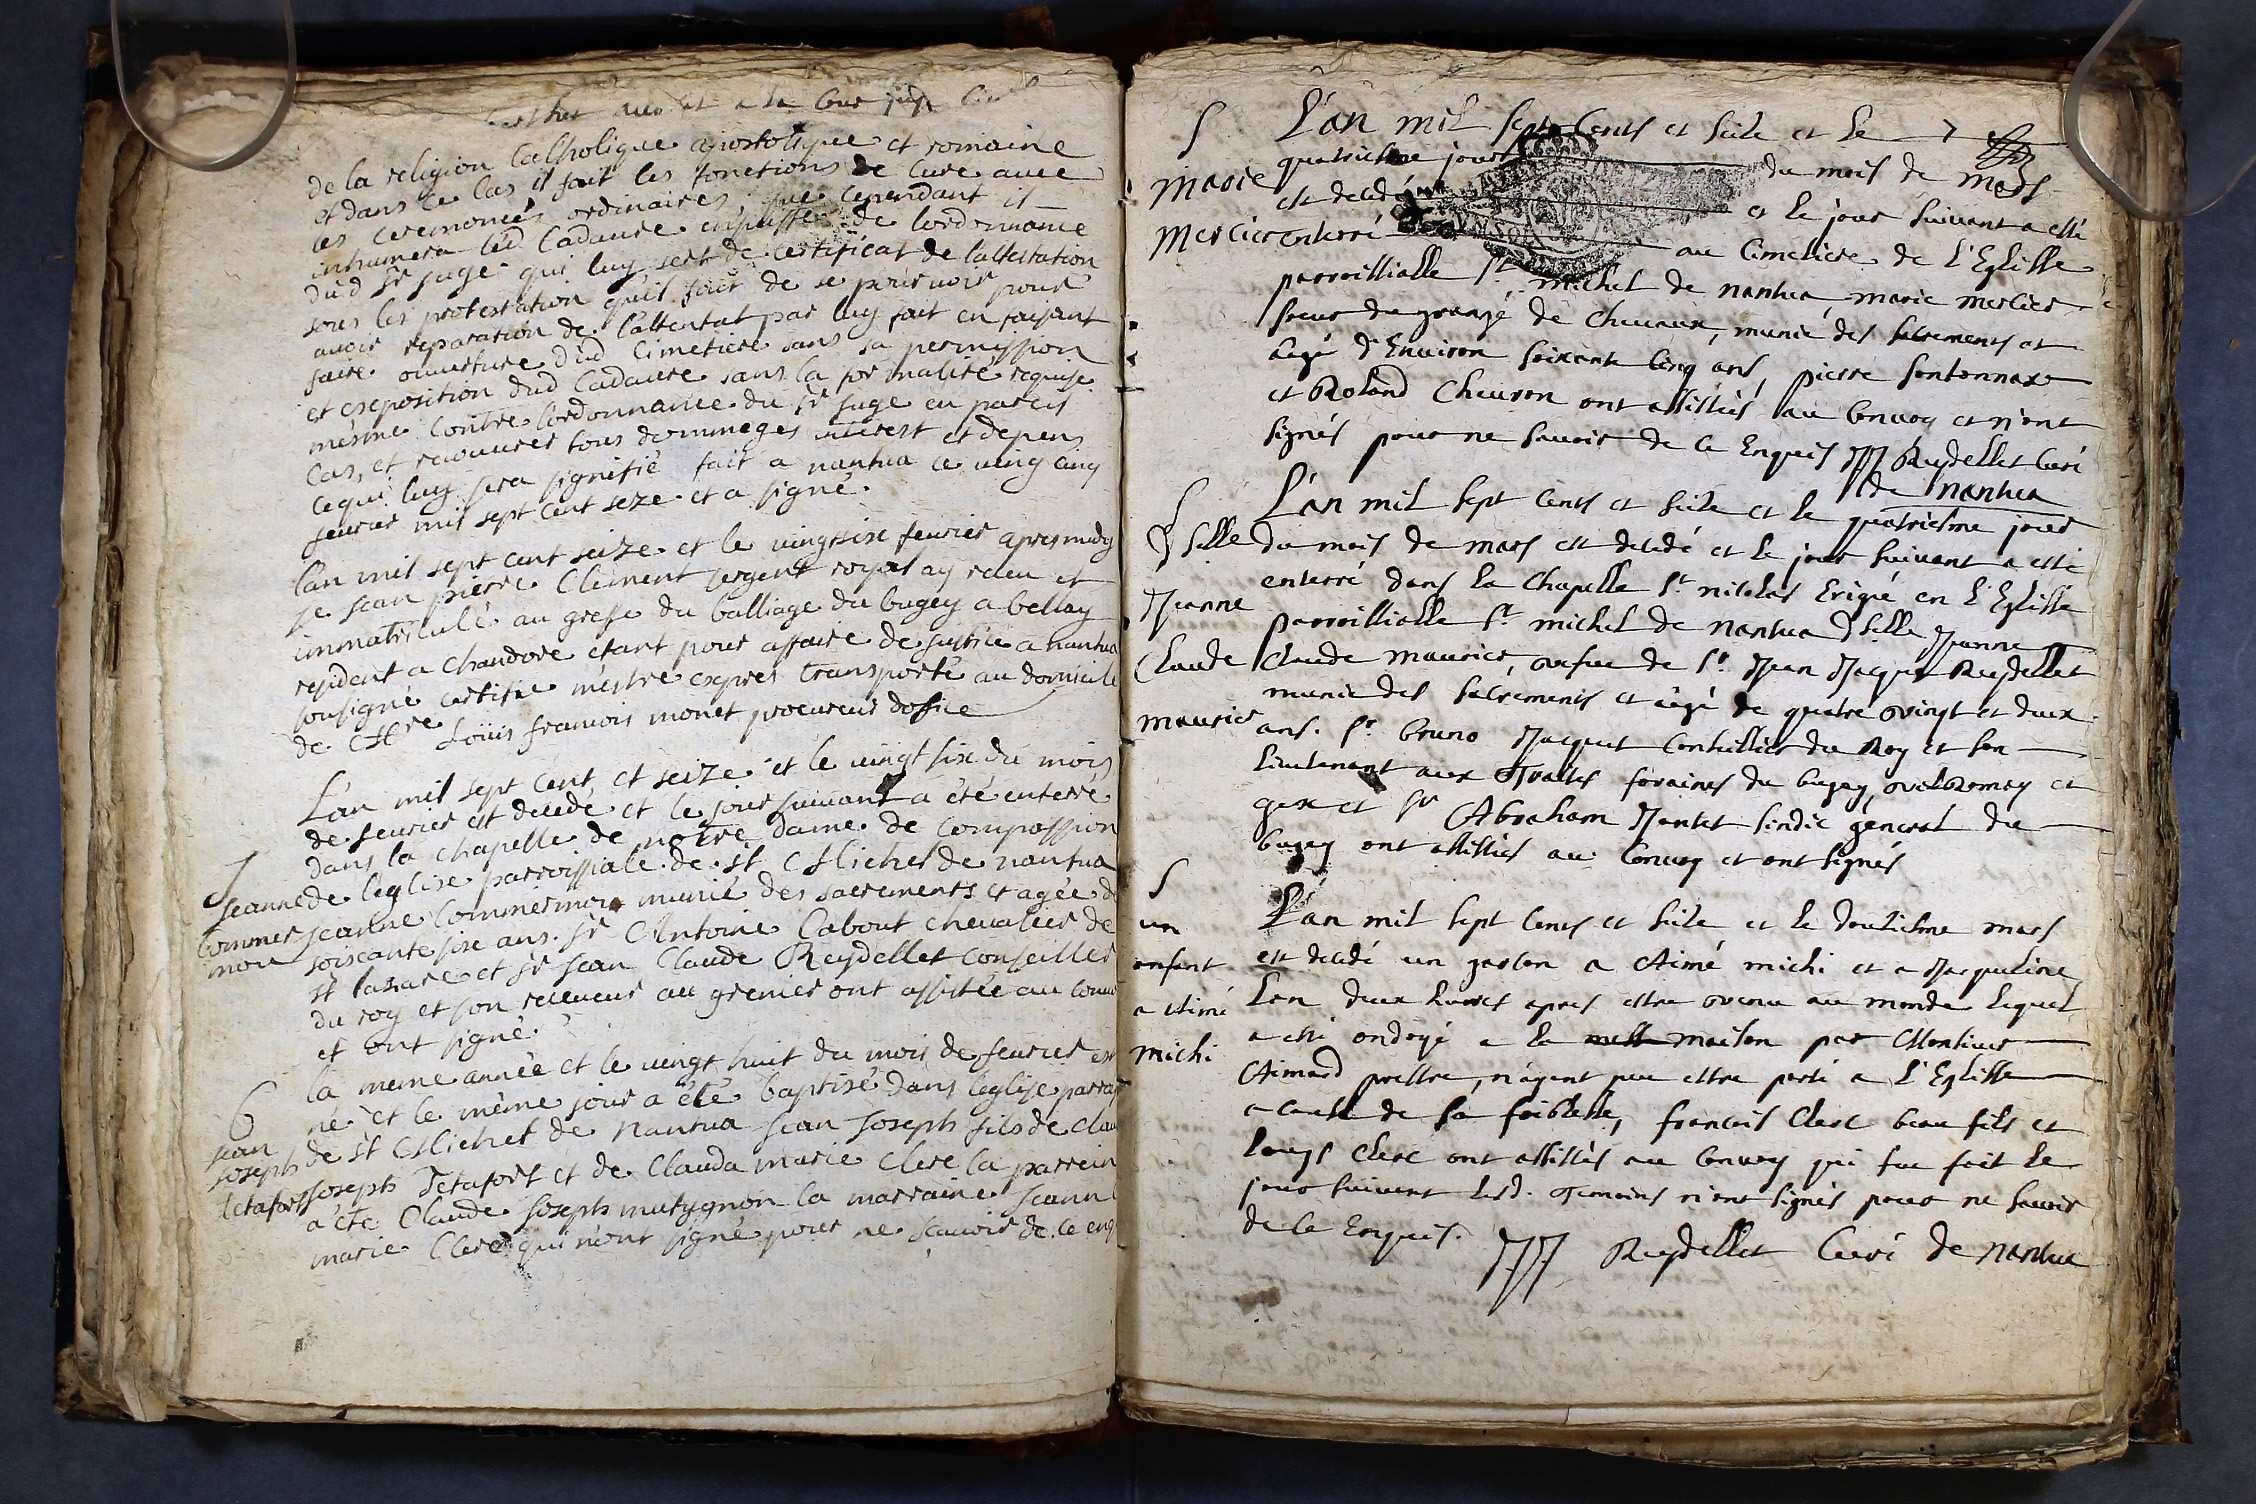 de la religion Catholique apostolique et romaine
et dans ce Cas il fait les fonctions de Cure avec
les ceremonies ordinaires que cependant il
inhumera led Cadavre en suitte de lordonnance
dud sr juge qui luy sert de certificat de lattestation
sous les protestation quil fait de se pourvoir pour
avoir reparation de l'attentat par luy fait en faisant
faire ouverture dud Cimetiere sans sa permission
et exposition dud Cadavre sans la formalité requise
mesme contre l'ordonnance du sr juge en pareis
Cas, et recouvrer tous dommeges interest et depens
ce qui luy sera signifié fait a nantua ce ving cinq
fevrier mil sept cent seze et a signé.
lan mil sept cent seize et le vingtsix fevrier apres midy
je jean pierre Clement sergent royal ay receu et
immatriculé au grefe du balliage du bugey a bellay
resident a Chandore etant pour affaire de justice a nantua
sousigné certifie m'estre expres transporté au domicile
de Mre Loüis francois monet procureur dofice
L'an mil sept Cent, et seize et le vingt six du mois
de fevrier est decede et le jour suivant a été enterré
dans la chapelle de notre dame de Compassion
S
jeanne de l'eglise parroissiale de st Michel de nantua
Commer jeanne Commermou munie des sacrements et agée de
mou soixante six ans. sr Antoine Cabout chevalier de
st lazare et sr jean Claude Reydellet Conseiller
du roy et son receveur au grenier ont assistée au convoi
et ont signé.
la meme année et le vingt huit du mois de fevrier est
6 né et le même jour a été baptisé dans leglise parroi
jean
joseph de st Michel de nantua jean joseph fils de Clau
detafort joseph detafort et de Clauda marie Clerc la parrein
a été Claude joseph mutygnon la marraine jeann
marie Clerc qui n'ont signé pour ne scavoir de ce enq
S L'an mil sept Cents et seize et le
quatriesme jour du mois de mars
Marie est decedé et le jour suivant a esté
Mercier enterré au Cimetiere de l'Eglisse
parroissialle St. michel de nantua marie mercier
soeur du grangé de Chevaux, munie des sacrements et
agé d'Environ soixante Cinq ans, pierre fontannax
et Roland Chevron ont assistés au Convoy et n'ont
signés pour ne savoir de ce Enquis JJJ Reydellet Curé
de Nantua
S L'an mil sept Cents et seize et le quatriesme jour
Dselle du mois de mars est decedé et le jour suivant a esté
enterré dans la Chapelle St. nicolas Erigié en l'Eglisse
Jeanne parroissialle St michel de nantua Dselle Jeanne
Claude Claude maurier, vefue de Sr. Jean Jacque Reydellet
munie des sacrements et agé de quatre vingt et deux
maurier ans. Sr. bruno Jacquet Conseillier du Roy et son
Lieutenant aux Traittes foraines du bugey, valromey et
gex et Sr Abraham Jantet sindic general du
bugey ont assistés au Convoy et ont signés
S
un L'an mil sept Cents et seize et le douziesme mars
enfant est decedé un garson a Aimé michi et a Jacqueline
a Aimé Lan deux heures apres estre venu au monde lequel
a esté ondoyé a la maison par Monsieur
michi
Aimard prestre, n'ayent peu estre porté a l'Eglisse
a cause de sa foiblesse, francois Clerc beau fils et
Louys Clerc ont assistés au Convoy qui fue fait le
jour suivant lesd. temoins n'ont signés pour ne savoir
de ce Enquis. JJJ Reydellet Curé de Nantua